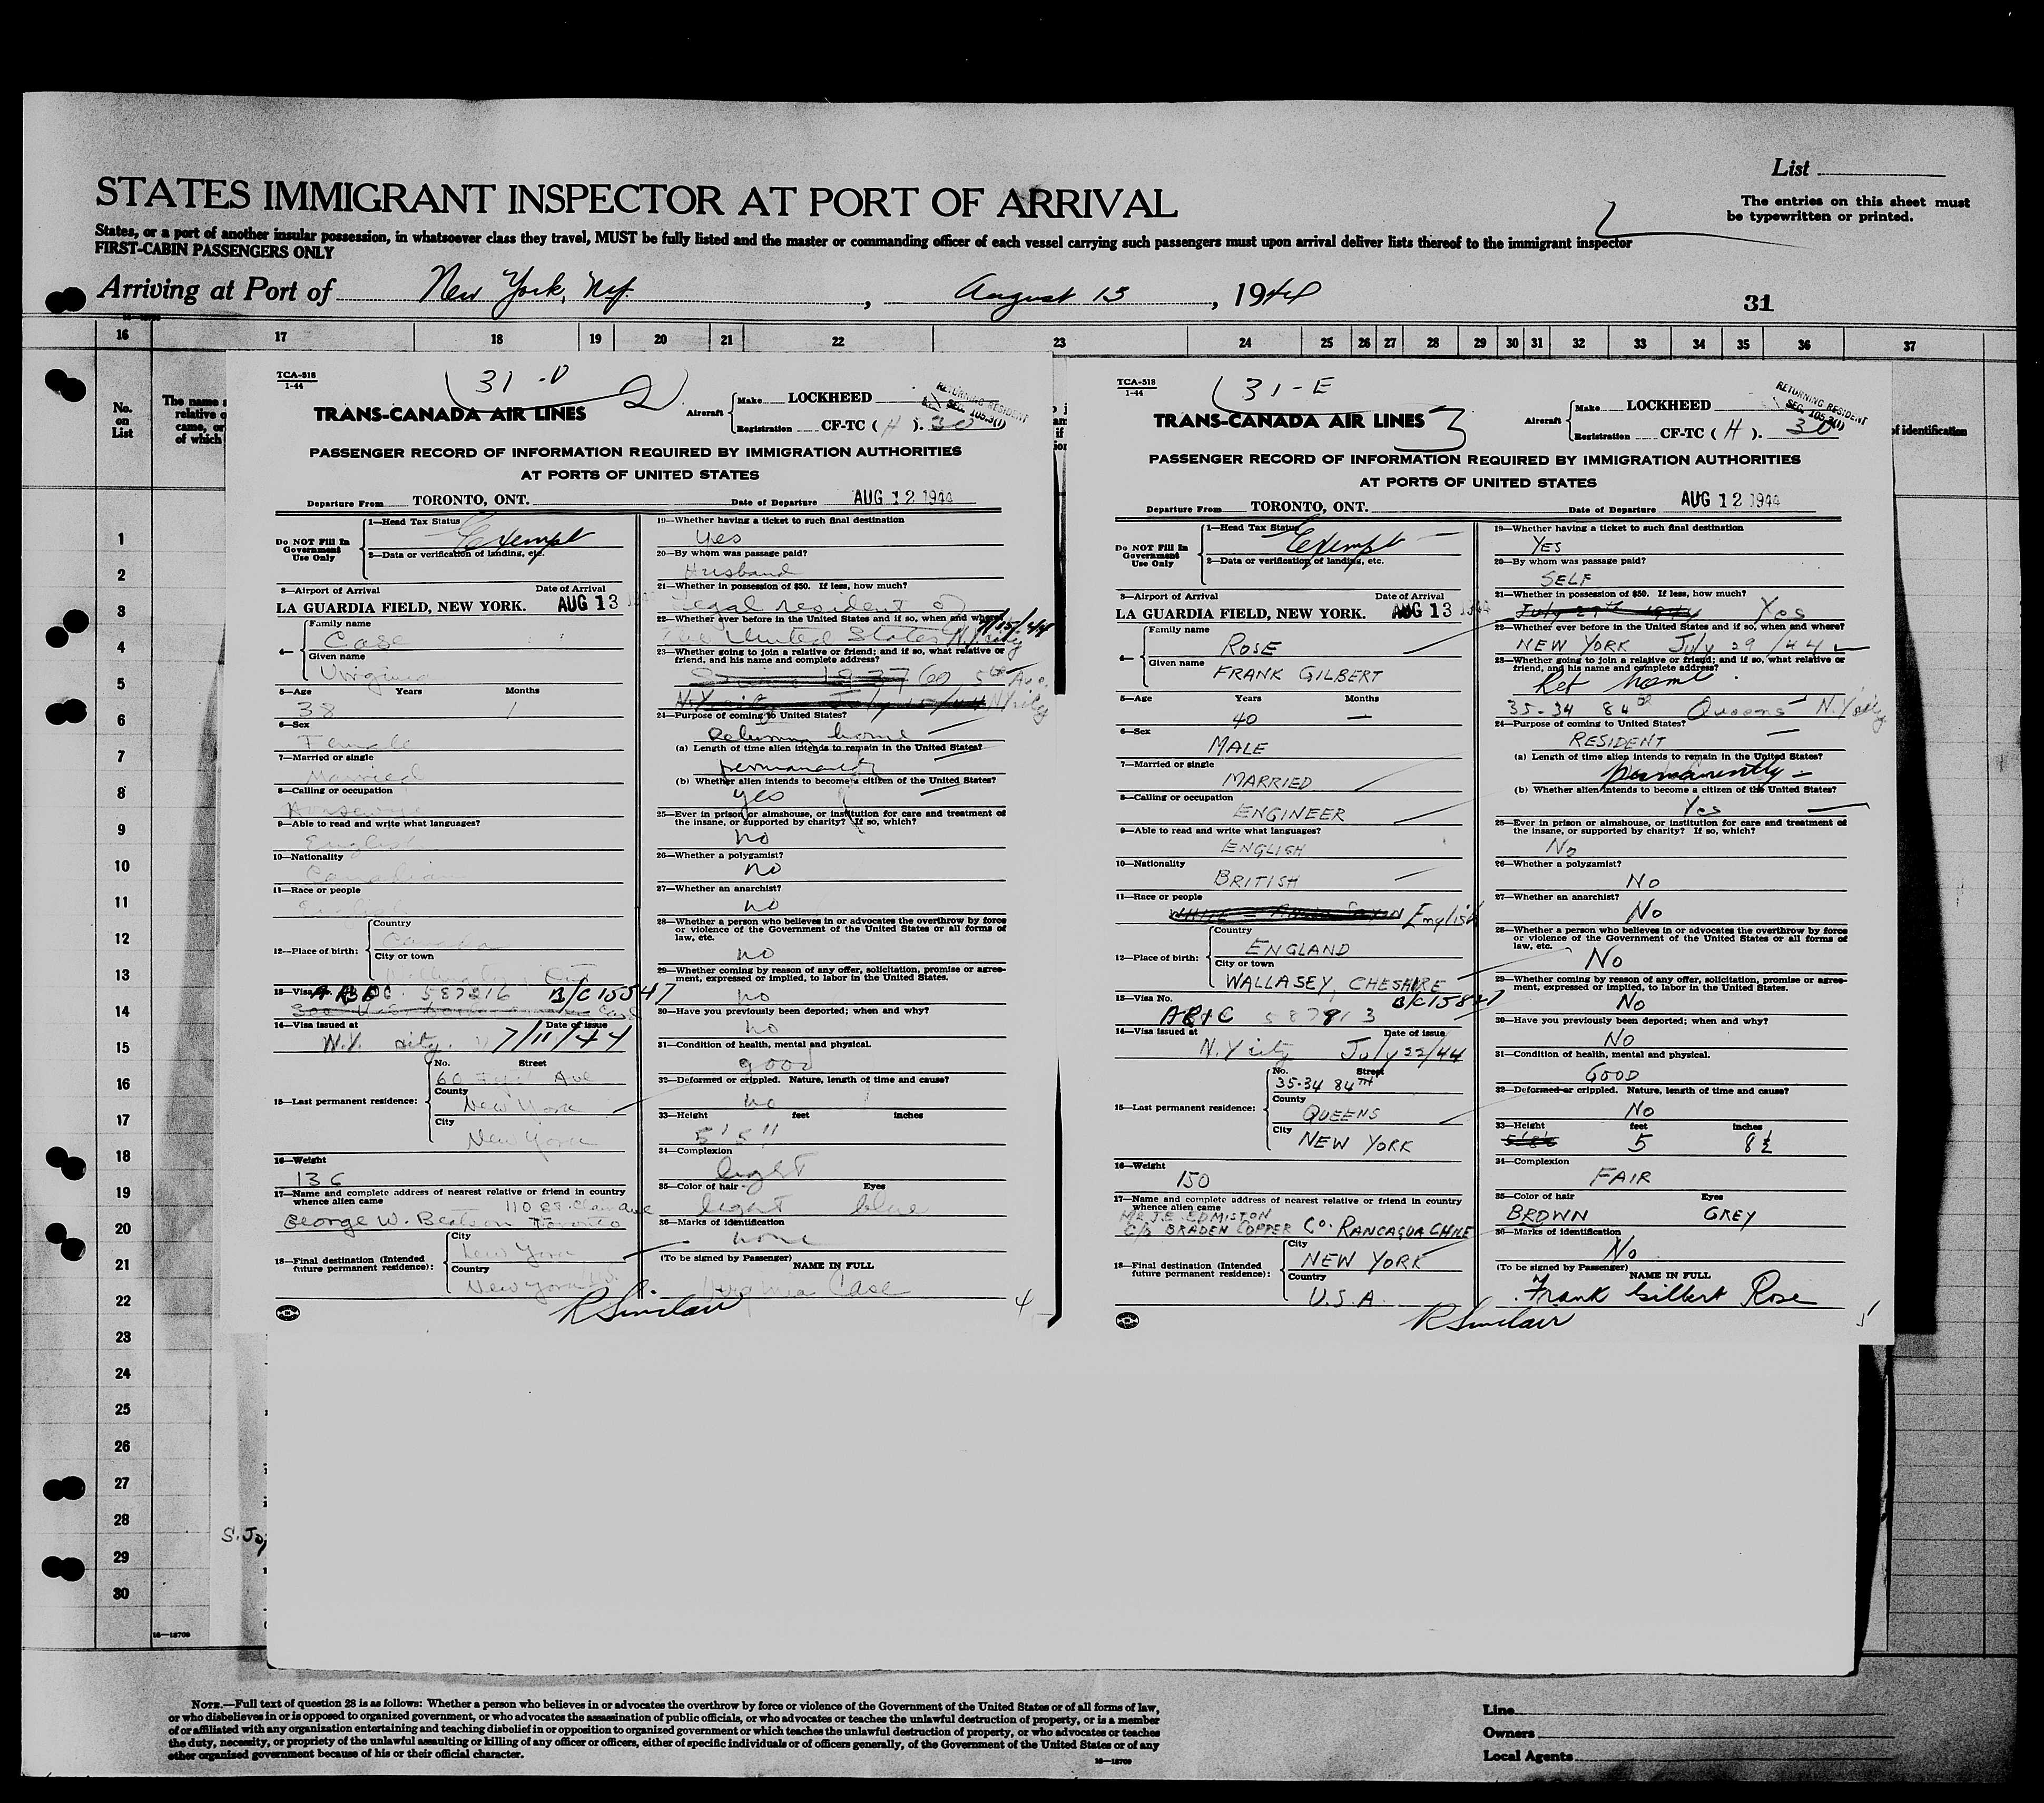 List
STATES IMMIGRANT INSPECTOR AT PORT OF ARRIVAL
The entries on this sheet must
be typewritten or printed.
States, or a port of another insular possession, in whatsoever class they travel, MUST be fully listed and the master or commanding officer of each vessel carrying such passengers must upon arrival deliver lists thereof to the immigrant inspector
FIRST-CABIN PASSENGERS ONLY
Arriving at Port of New York, N.Y. , August 13 , 1944
31
16 17 18 19 20 21 22 23 24 25 26 27 28 29 30 31 32 33 34 35 36 37
No.
on
List
The name
relative o
came, or
of which
of identification
1
2
3
4
5
6
7
8
9
10
11
12
13
14
15
16
17
18
19
20
21
22
23
24
25
26
27
28
29
30
TCA-518
1-44
31-D
2
TRANS-CANADA AIR LINES
Aircraft
Make LOCKHEED
Registration CF-TC ( H ). 30
RETURNING RESIDENT
SEC. 105.3(1)
PASSENGER RECORD OF INFORMATION REQUIRED BY IMMIGRATION AUTHORITIES
AT PORTS OF UNITED STATES
Departure From TORONTO, ONT. Date of Departure AUG 12 1944
Do NOT Fill In
Government
Use Only
1—Head Tax Status Exempt
2—Data or verification of landing, etc.
3—Airport of Arrival Date of Arrival
LA GUARDIA FIELD, NEW YORK. AUG 13
4—
Family name
Case
Given name
Virginia
5—Age Years Months
38 1
6—Sex
Female
7—Married or single
Married
8—Calling or occupation
Housewife
9—Able to read and write what languages?
English
10—Nationality
Canadian
11—Race or people
English
12—Place of birth:
Country
Canada
City or town
Ont
13—Visa No. B/C 15547
14—Visa issued at Date of issue
N.Y. city. 7/11/44
15—Last permanent residence:
No. Street
60 Ave
County
New York
City
New York
16—Weight
136
17—Name and complete address of nearest relative or friend in country
whence alien came
110 St. Clair Ave
George W. Beatson Toronto
18—Final destination (Intended
future permanent residence):
City
New York
Country
New York
R Sinclair
19—Whether having a ticket to such final destination
Yes
20—By whom was passage paid?
Husband
21—Whether in possession of $50. If less, how much?
Legal resident of
22—Whether ever before in the United States and if so, when and where?
7/15/44
The United States N.Y. city
23—Whether going to join a relative or friend; and if so, what relative or
friend, and his name and complete address?
Since 1937 60 5th Ave.
N.Y. city
24—Purpose of coming to United States?
Returning home
(a) Length of time alien intends to remain in the United States?
permanently
(b) Whether alien intends to become a citizen of the United States?
yes
25—Ever in prison or almshouse, or institution for care and treatment of
the insane, or supported by charity? If so, which?
no
26—Whether a polygamist?
no
27—Whether an anarchist?
no
28—Whether a person who believes in or advocates the overthrow by force
or violence of the Government of the United States or all forms of
law, etc.
no
29—Whether coming by reason of any offer, solicitation, promise or agree-
ment, expressed or implied, to labor in the United States.
no
30—Have you previously been deported; when and why?
no
31—Condition of health, mental and physical.
good
32—Deformed or crippled. Nature, length of time and cause?
no
33—Height feet inches
5' 5"
34—Complexion
light
35—Color of hair Eyes
light blue
36—Marks of identification
none
(To be signed by Passenger)
NAME IN FULL
Virginia Case
4
TCA-518
1-44
31-E
3
TRANS-CANADA AIR LINES
Aircraft
Make LOCKHEED
Registration CF-TC ( H ). 30
RETURNING RESIDENT
SEC. 105.3(1)
PASSENGER RECORD OF INFORMATION REQUIRED BY IMMIGRATION AUTHORITIES
AT PORTS OF UNITED STATES
Departure From TORONTO, ONT. Date of Departure AUG 12 1944
Do NOT Fill In
Government
Use Only
1—Head Tax Status Exempt
2—Data or verification of landing, etc.
3—Airport of Arrival Date of Arrival
LA GUARDIA FIELD, NEW YORK. AUG 13 1944
4—
Family name
ROSE
Given name
FRANK GILBERT
5—Age Years Months
40 —
6—Sex
MALE
7—Married or single
MARRIED
8—Calling or occupation
ENGINEER
9—Able to read and write what languages?
ENGLISH
10—Nationality
BRITISH
11—Race or people
English
12—Place of birth:
Country
ENGLAND
City or town
WALLASEY, CHESHIRE
13—Visa No.
14—Visa issued at Date of issue
N.Y city July 22/44
15—Last permanent residence:
No. Street
35-34 84TH
County
QUEENS
City
NEW YORK
16—Weight
150
17—Name and complete address of nearest relative or friend in country
whence alien came
MR J.E. EDMISTON
C/O BRADEN COPPER CO. RANCAGUA CHILE
18—Final destination (Intended
future permanent residence):
City
NEW YORK
Country
U.S.A.
R Sinclair
19—Whether having a ticket to such final destination
YES
20—By whom was passage paid?
SELF
21—Whether in possession of $50. If less, how much?
July 29th 1944 Yes
22—Whether ever before in the United States and if so, when and where?
NEW YORK July 29/44
23—Whether going to join a relative or friend; and if so, what relative or
friend, and his name and complete address?
Ret home
35-34 84th Queens N.Y city
24—Purpose of coming to United States?
RESIDENT
(a) Length of time alien intends to remain in the United States?
Permanently
(b) Whether alien intends to become a citizen of the United States?
Yes
25—Ever in prison or almshouse, or institution for care and treatment of
the insane, or supported by charity? If so, which?
No
26—Whether a polygamist?
No
27—Whether an anarchist?
No
28—Whether a person who believes in or advocates the overthrow by force
or violence of the Government of the United States or all forms of
law, etc.
No
29—Whether coming by reason of any offer, solicitation, promise or agree-
ment, expressed or implied, to labor in the United States.
No
30—Have you previously been deported; when and why?
No
31—Condition of health, mental and physical.
GOOD
32—Deformed or crippled. Nature, length of time and cause?
No
33—Height feet inches
5 8½
34—Complexion
FAIR
35—Color of hair Eyes
BROWN GREY
36—Marks of identification
No
(To be signed by Passenger)
NAME IN FULL
Frank Gilbert Rose
16—18709
NOTE.—Full text of question 28 is as follows: Whether a person who believes in or advocates the overthrow by force or violence of the Government of the United States or of all forms of law,
or who disbelieves in or is opposed to organized government, or who advocates the assassination of public officials, or who advocates or teaches the unlawful destruction of property, or is a member
of or affiliated with any organization entertaining and teaching disbelief in or opposition to organized government or which teaches the unlawful destruction of property, or who advocates or teaches
the duty, necessity, or propriety of the unlawful assaulting or killing of any officer or officers, either of specific individuals or of officers generally, of the Government of the United States or of any
other organized government because of his or their official character.
16—18709
Line
Owners
Local Agents